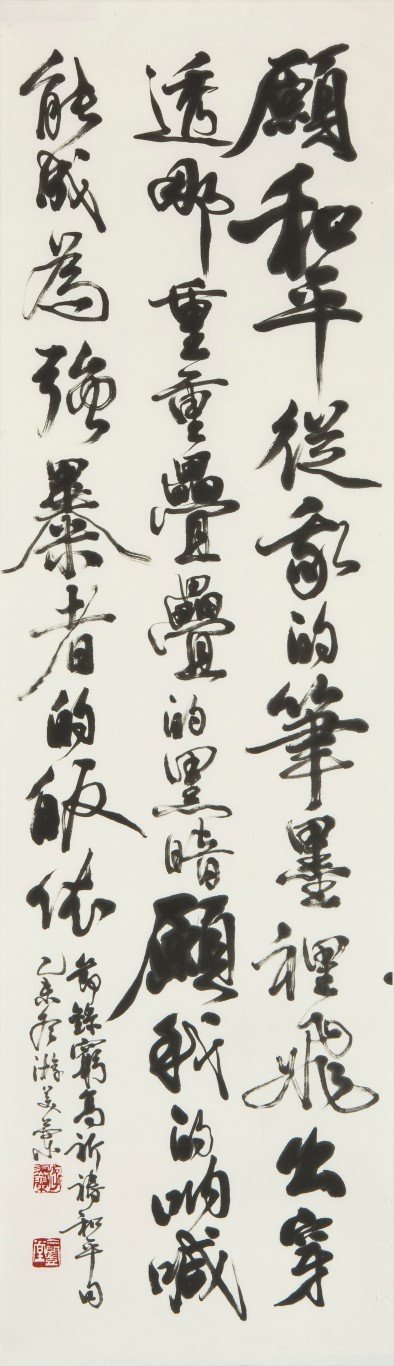 願和平從我的筆墨裡飛出穿
透那重重疊疊的黑暗願我的吶喊
能成為強暴者的皈依
節錄窮高祈禱和平句
乙未冬游美蘭